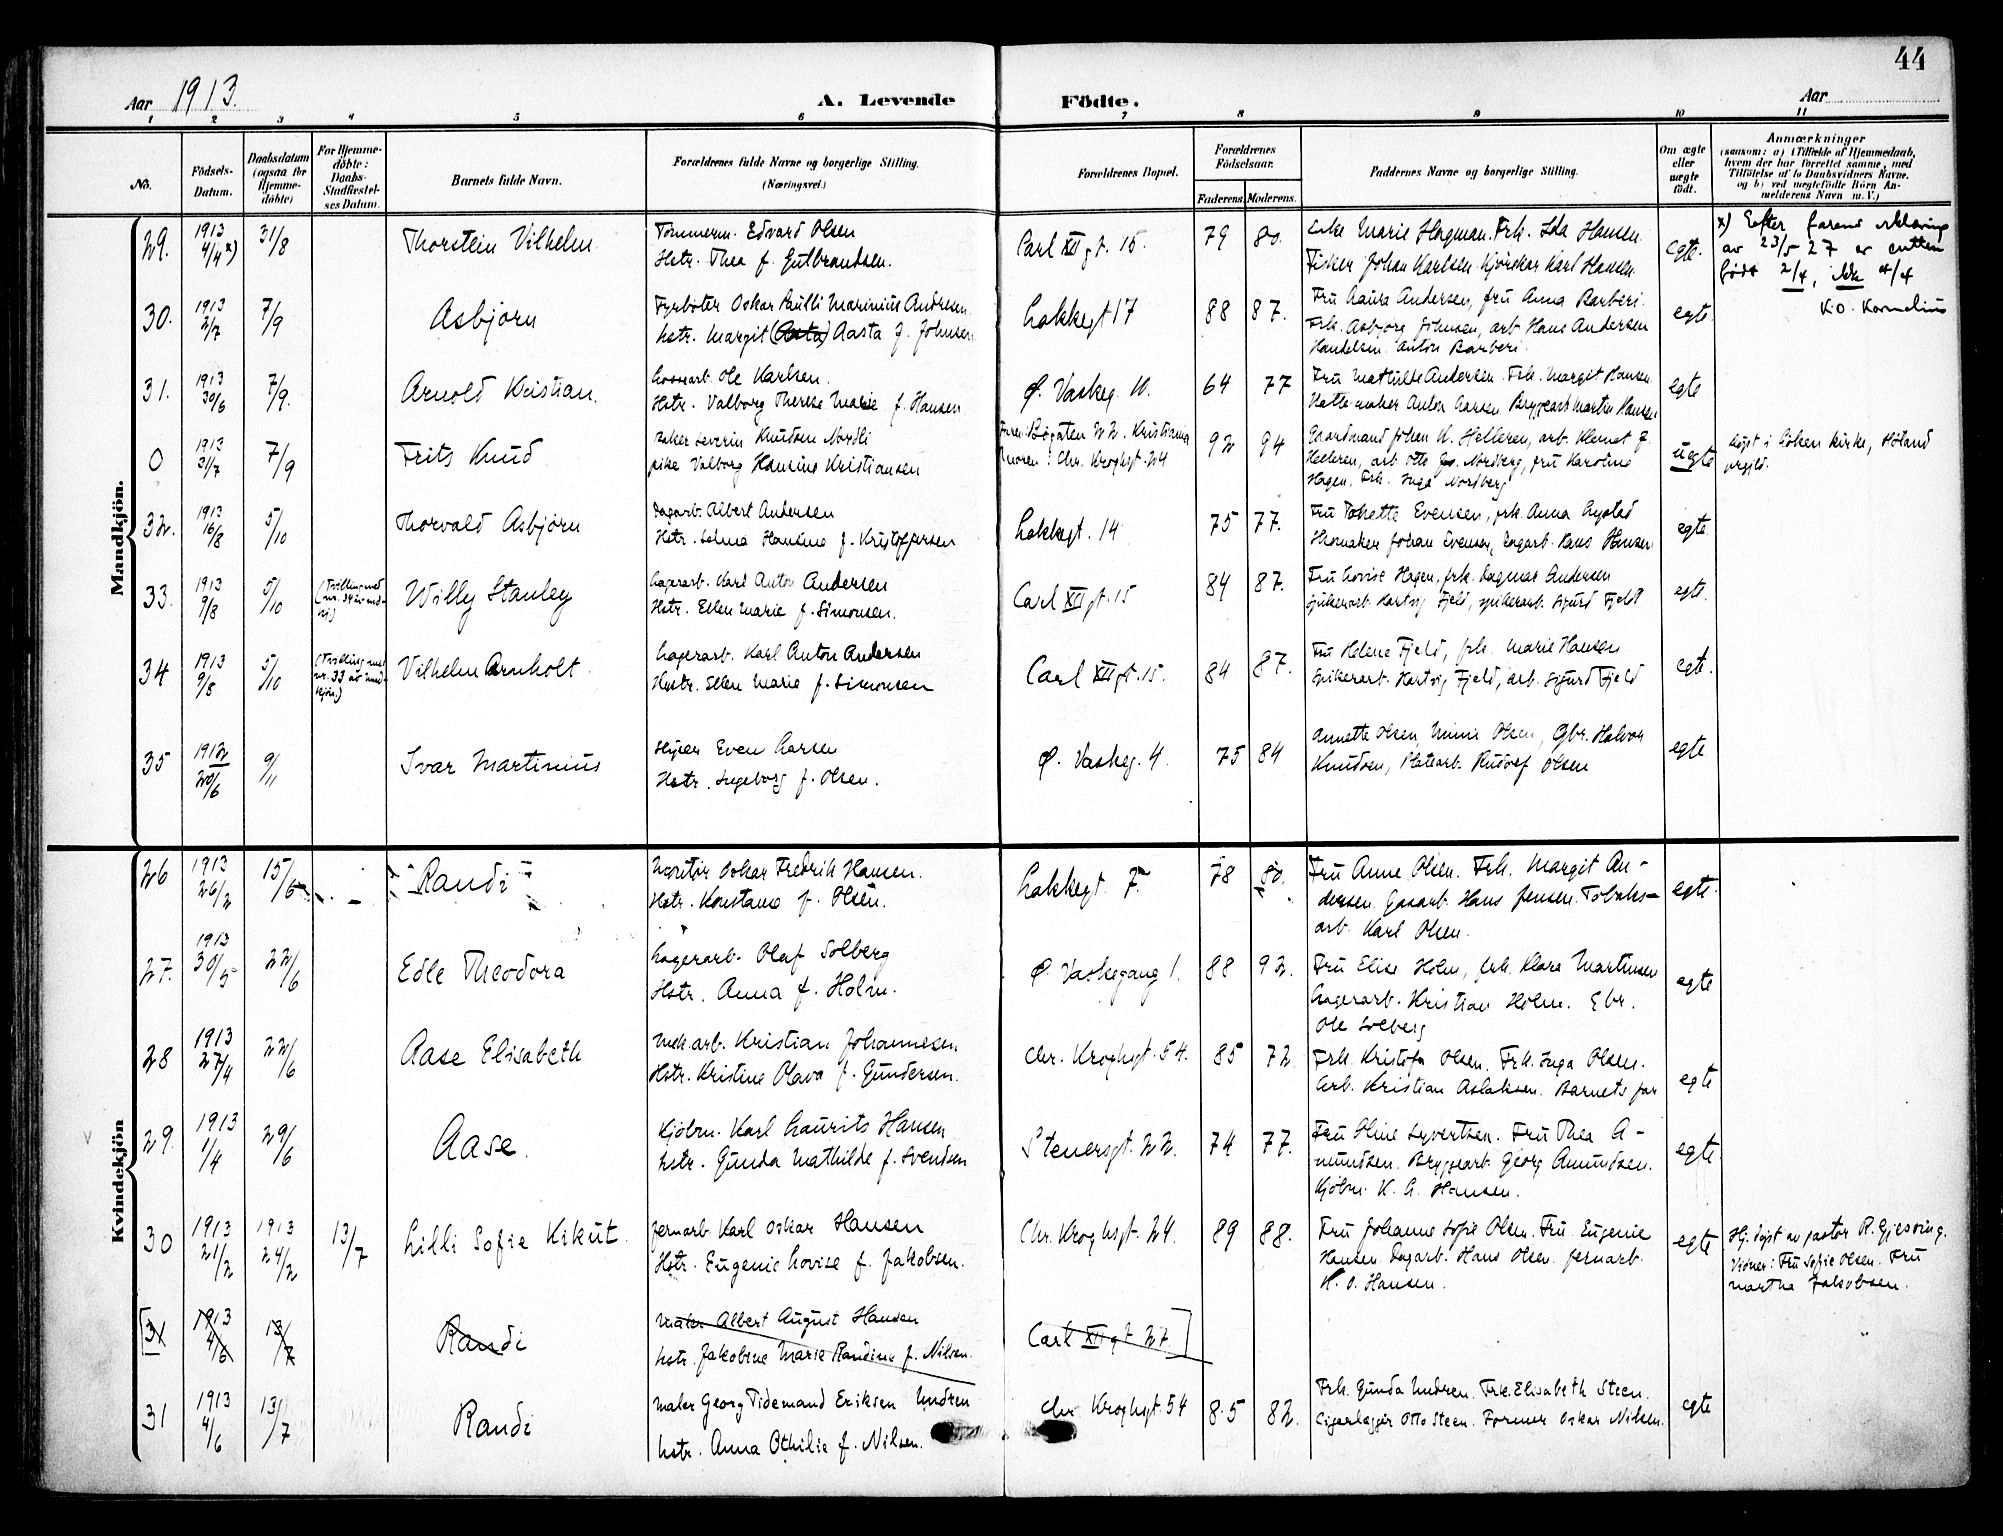 44
Aar 1913.
A. Levende Födte.
Aar
1 2 3 4 5 6 7 8 9 10 11
No.
Födsels-
Datum.
Daabsdatum
(ogsaa for
Hjemme-
döbte)
For Hjemme-
döbte:
Daabs-
Stadfæstel-
ses Datum.
Barnets fulde Navn.
Forældrenes fulde Navne og borgerlige Stilling.
(Næringsvei.)
Forældrenes Bopæl.
Forældrenes
Födselsaar.
Faderens. Moderens.
Faddernes Navne og borgerlige Stilling.
Om ægte
eller
uægte
födt.
Anmærkninger
(saasom: a) i Tilfælde af Hjemmedaab,
hvem der har forrettet samme, med
Tilföielse af to Daabsvidners Navne.
og b) ved uægtefödte Börn An-
melderens Navn m. V.)
Mandkjön.
29. 1913 4/4 x) 31/8 Thorstein Vilhelm
Tömmerm. Edvard Olsen
Hstr. Thea f. Gulbrandsen.
Carl XII gt. 15 79 80.
Enke Marie Hagman. Frk. Ida Hansen.
Fisker Johan Karlsen. Karl Hansen
egte.
x) Efter farens erklæring
av 23/5 27 er gutten
født 2/4, ikke 4/4
K.O. Kornelius
30. 1913 2/7 7/9 Asbjørn
Fyrbøter Oskar Paulli Marinius Andresen
hstr. Margit Aasta f. Johnsen
Lakkegt 17 88 87.
Fru Laura Andersen, fru Anna Barberi.
Frk. Asbjørg Johnsen, arb. Hans Andersen
Handelsm. Anton Barberi.
egte.
31. 1913 30/6 7/9. Arnold Kristian.
Ole Karlsen.
Hstr. Valborg Therese Marie f. Hansen
Ø. Vaskeg. 10. 64 77
Fru Mathilde Andersen. Frk. Margit Hansen
Hattemaker Anton Larsen. Bryggearb. Martin Hansen
egte
0 1913 31/7 7/9 Frits Knud
Baker Severin Knudsen Nordli
pike Valborg Hansine Kristiansen
Faren: Bøgaten 22. Kristiania
Moren: Chr. Kroghgt. 24 92 94
Gaardmand Johan K. Helleren, arb. Klemet J.
Helleren, arb. Otto Nordberg, fru Karoline
Hagen. Frk. Inga Nordberg
uegte
døpt i Løken kirke, Høland
prgjld.
32. 1913 16/8 5/10 Thorvald Asbjørn
Dagarb. Albert Andersen
Hstr. Selma Hansine f. Kristoffersen
Lakkegt. 14 75 77.
Fru Evensen, frk. Anna
Skomaker Johan Evensen, Dagarb. Hans Hansen
egte.
33. 1913 9/8 5/10 (Tvilling med nr. 34 av mdkj.) Willy Stanley
Lagerarb. Karl Anton Andersen
Hstr. Ellen Marie f. Simonsen.
Carl XII gt. 15 84 87.
Fru Lovise Hagen, frk. Dagmar Andersen
Spikerarb. Hartvig Fjeld, spikerarb. Sigurd Fjeld
egte.
34 1913 9/8 5/10 (Tvilling med nr. 33 av mandkjøn) Vilhelm Arnholt.
Lagerarb. Karl Anton Andersen
Hstr. Ellen Marie f. Simonsen
Carl XII gt. 15. 84 87.
Fru Helene Fjeld, frk. Marie Hansen
Spikerarb. Hartvig Fjeld, arb. Sigurd Fjeld
egte.
35 1912 20/6 9/11 Ivar Martinius
Even Larsen
Hstr. Ingeborg f. Olsen.
Ø. Vaskeg. 4. 75 84
Annette Olsen, Minnie Olsen, Gbr. Halvor
Knudsen, Platearb. Rudolf Olsen
egte
Kvindekjön
26 1913 26/2 15/6 Randi
Montør Oskar Fredrik Hansen.
Hstr. Konstanse f. Olsen.
Lakkegt. 7. 78 80.
Fru Anne Olsen. Frk. Margit An-
dersen. Gasarb. Hans Jensen. Tobaks-
arb. Karl Olsen.
egte.
27. 1913 30/5 22/6 Edle Theodora
Lagerarb. Olaf Solberg
Hstr. Anna f. Holm.
Ø. Vaskegang 1. 88 92.
Fru Elise Holm, frk. Klara Martinsen
Lagerarb. Kristian Holm. Gbr.
Ole Solberg
egte
28 1913 27/4 22/6 Aase Elisabeth
Mek. arb. Kristian Johannesen
Hstr. Kristine Olava f. Gundersen.
Chr. Kroghgt. 54. 85 72.
Frk. Kristofa Olsen. Frk. Inga Olsen.
Arb. Kristian Aslaksen. Barnets far
egte
29. 1913 1/4 29/6 Aase.
Kjøbm. Karl Laurits Hansen
hstr. Gunda Mathilde f. Svendsen
Stenersgt. 22. 74 77.
Fru Stine Syvertsen. Fru Thea A-
mundsen. Bryggearb. Georg Amundsen.
Kjøbm. K. L. Hansen.
egte.
30 1913 21/2 1913 24/2 13/7 Lilli Sofie Kikut.
Jernarb. Karl Oskar Hansen
Hstr. Eugenie Lovise f. Jakobsen.
Chr. Kroghsgt. 24. 89 88.
Fru Johanne Sofie Olsen. Fru Eugenie
Hansen. Dagarb. Hans Olsen. Jernarb.
K. O. Hansen.
egte
Hj. døpt av pastor R. Gjessing.
Vidner: Fru Sofie Olsen. Fru
Martha Jakobsen.
[31 1913 4/6 13/7 Randi
Maler Albert August Hansen
hstr. Jakobine Marie Randine f. Nilsen.
Carl XII gt. 27.]
31 1913 4/6 13/7 Randi
Maler Georg Tidemand Eriksen Undren
hstr. Anna Othilie f. Nilsen.
Chr Kroghgt 54 85 82.
Frk. Gunda Undren. Frk. Elisabeth Steen.
Cigarlagger Otto Steen. Former Oskar Nilsen.
egte